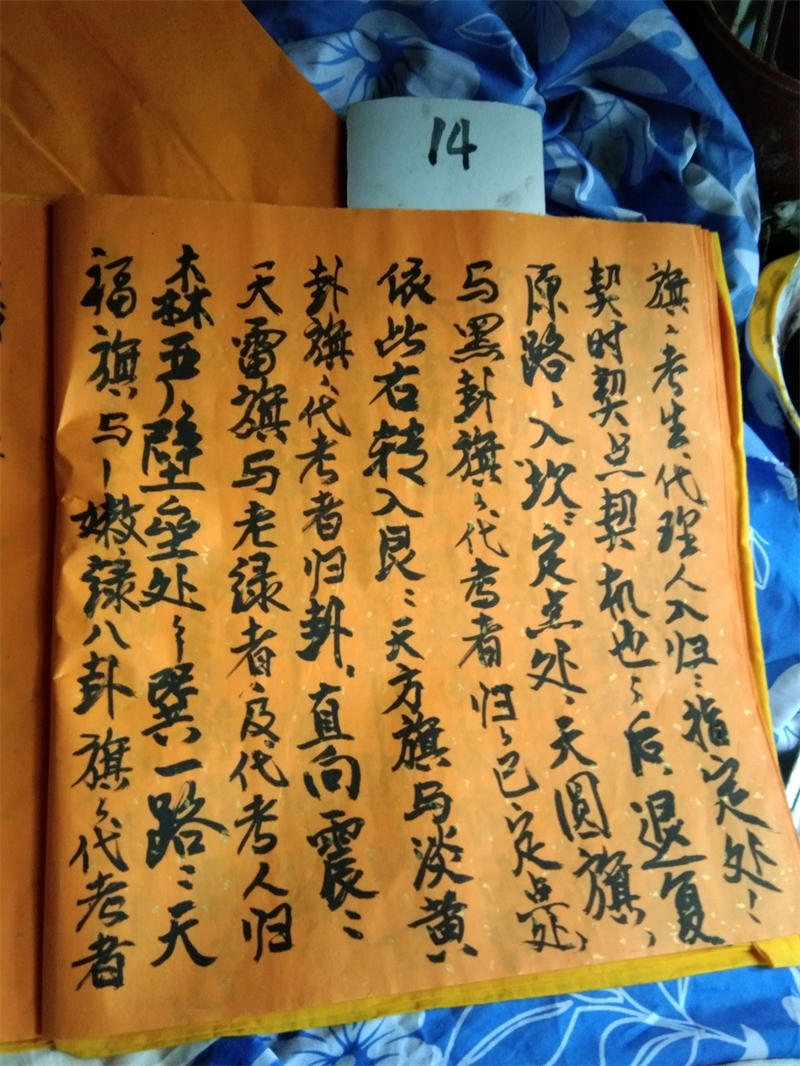 14
旗、考生、代理人入归、指定处、
契时契点契机也、后退复
原路、入坎、定点处、天圆旗、
与黑卦旗、代考者归、已定点处、
依此右转入艮、天方旗与淡黄
卦旗、代考者归卦、直向震、
天雷旗与老绿者、及代考人归
木森五行壁垒处、巽一路、天
福旗与嫩绿八卦旗、代考者